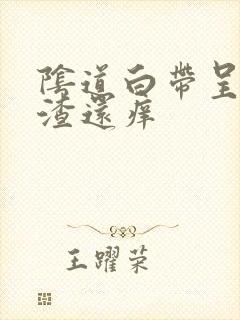 陰道白帶呈
渣還痒
王躍荣